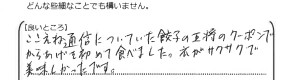 どんな些細なことでも構いません。
【良いところ】
ここえね通信についていた餃子の王将のクーポンで
からあげを初めて食べました。衣がサクサクで
美味しかったです。